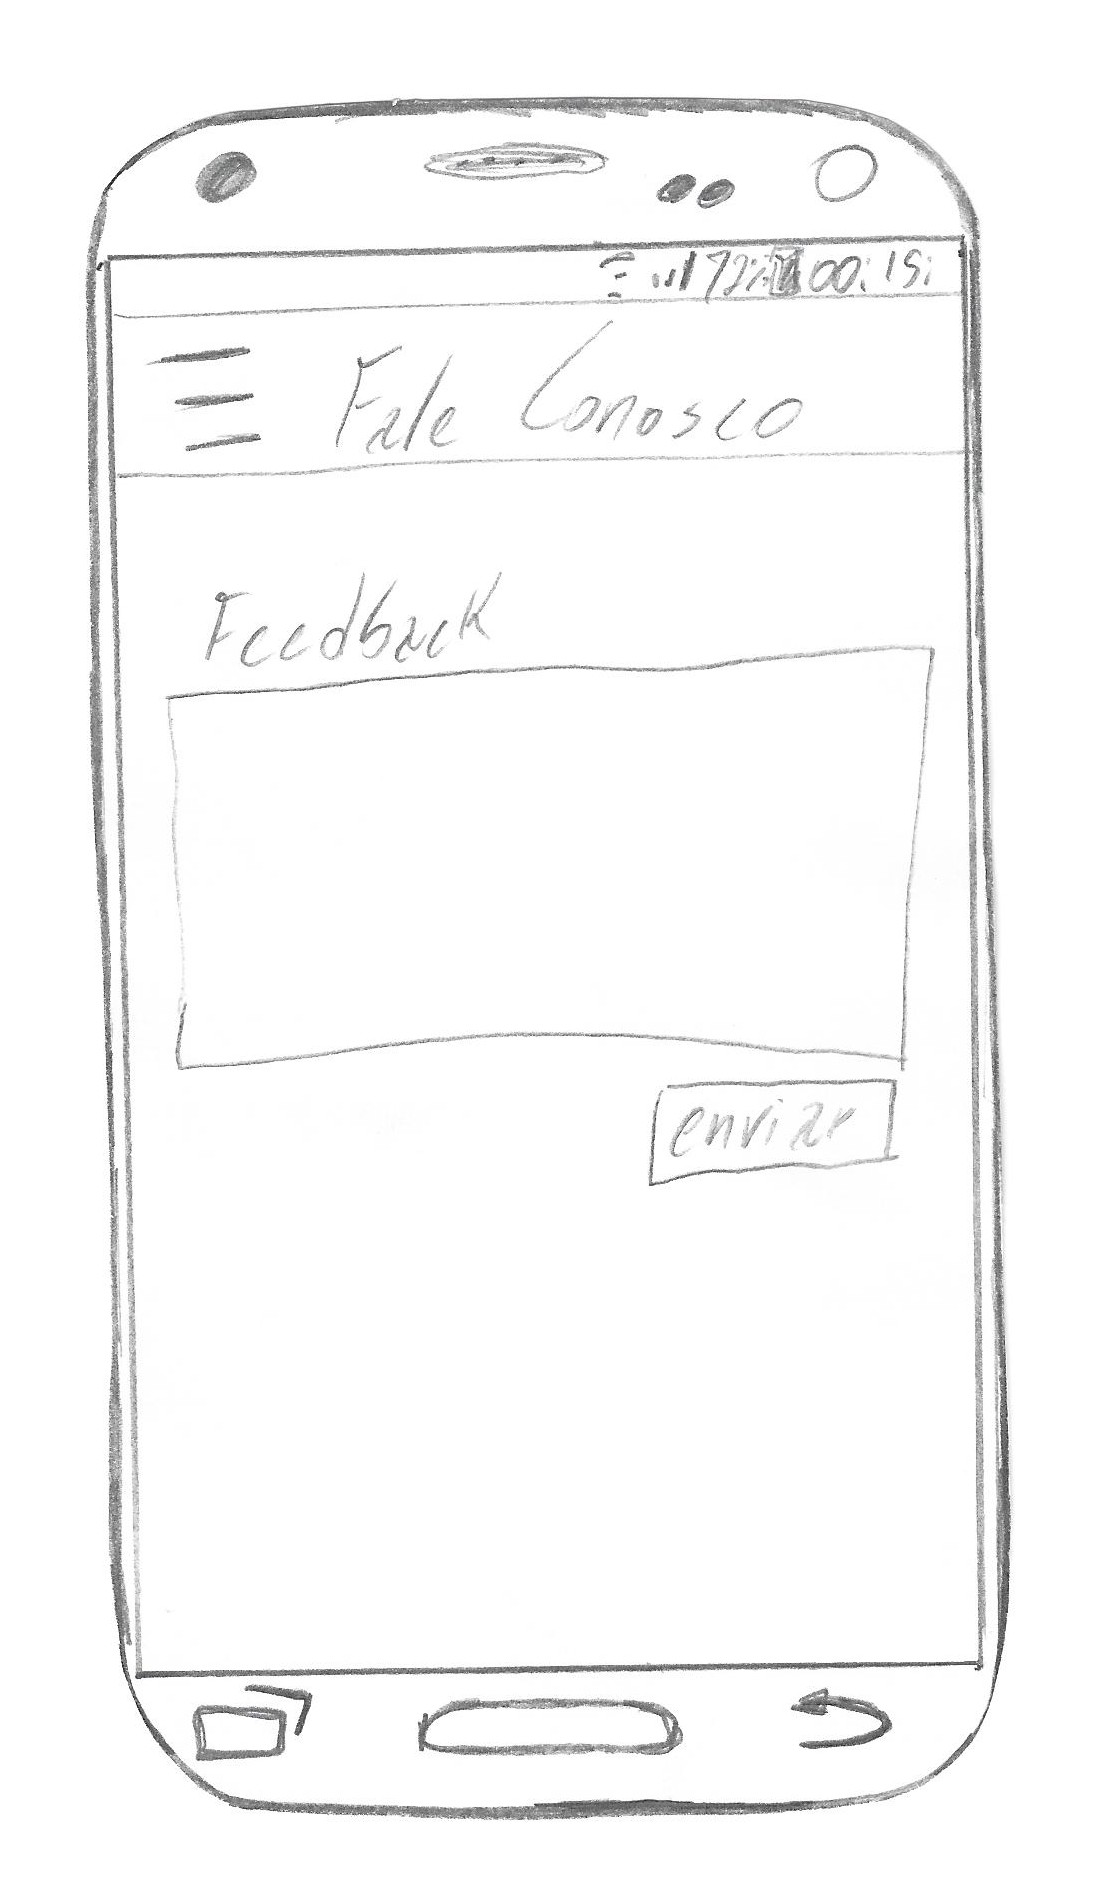 00:15
Fale Conosco
Feedback
enviar